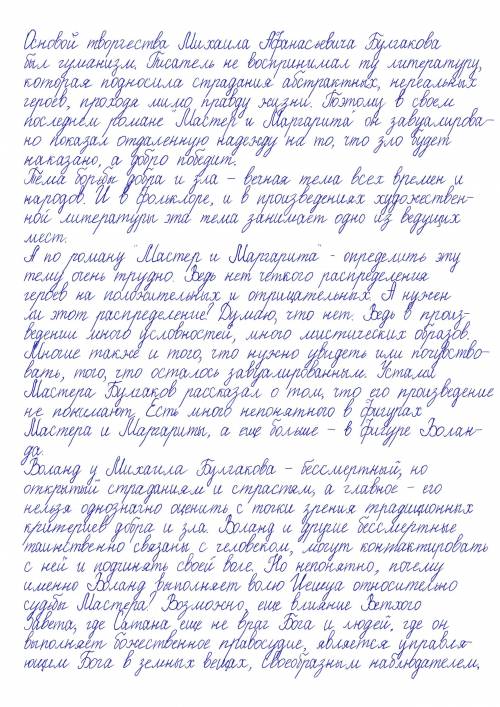 Основой творчества Михаила Афанасьевича Булгакова
был гуманизм. Писатель не воспринимал ту литературу,
которая подносила страдания абстрактных, нереальных
героев, проходя мимо правду жизни. Поэтому в своем
последнем романе "Мастер и Маргарита" он завуалирова-
но показал отдаленную надежду на то, что зло будет
наказано, а добро победит.
Тема борьбы добра и зла – вечная тема всех времен и
народов. И в фольклоре, и в произведениях художествен-
ной литературы эта тема занимает одно из ведущих
мест.
А по роману "Мастер и Маргарита" - определить эту
тему очень трудно. Ведь нет чёткого распределения
героев на положительных и отрицательных. А нужен
ли этот распределение? Думаю, что нет. Ведь в произ-
ведении много условностей, много мистических образов.
Многие также и того, что нужно увидеть или почувство-
вать, того, что осталось завуалированным. Устами
Мастера Булгаков рассказал о том, что его произведение
не понимают. Есть много непонятного в фигурах
Мастера и Маргариты, а еще больше – в фигуре Волан-
да.
Воланд у Михаила Булгакова – бессмертный, но
открытый страданиям и страстям, а главное – его
нельзя однозначно оценить с точки зрения традиционных
критериев добра и зла. Воланд и другие бессмертные
таинственно связаны с человеком, могут контактировать
с ней и подчинять своей воле. Но непонятно, почему
именно Воланд выполняет волю Иешуа относительно
судьбы Мастера? Возможно, еще влияние Ветхого
Завета, где Сатана еще не враг Бога и людей, где он
выполняет божественное правосудие, является управля-
ющим Бога в земных вещах, Своеобразным наблюдателем,